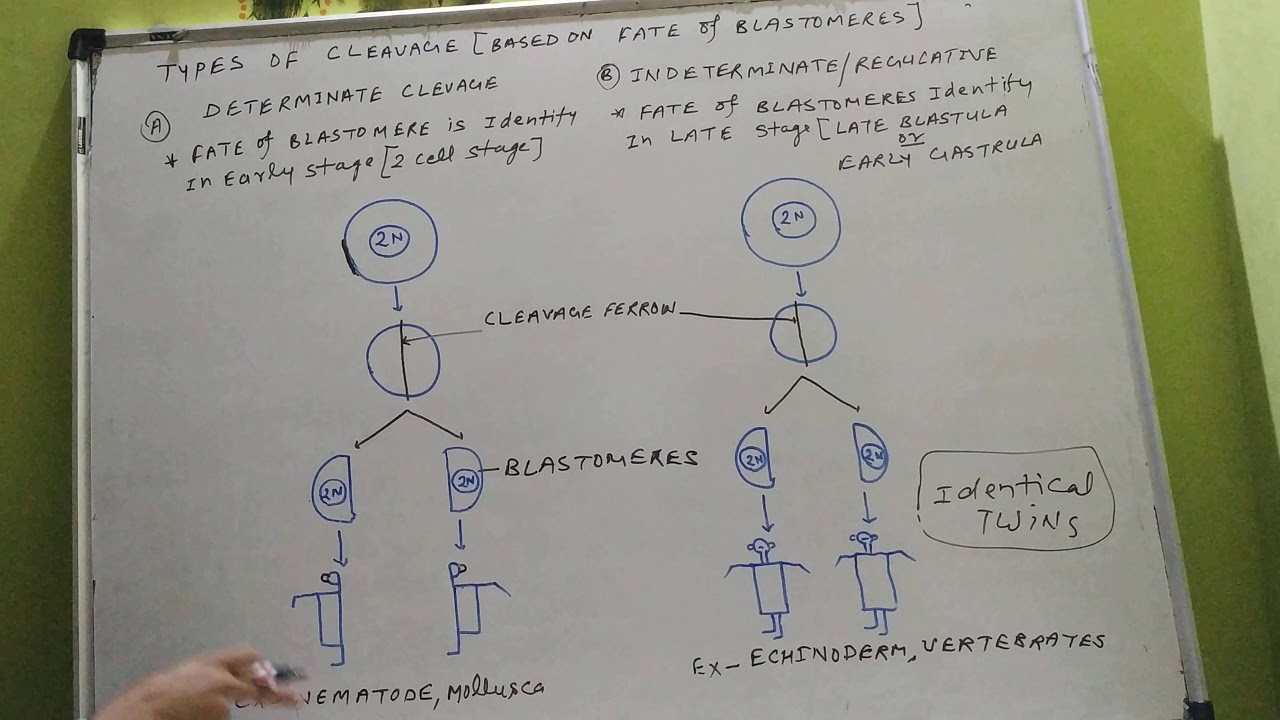 TYPES OF CLEAVAGE [BASED ON FATE of BLASTOMERES]
Ⓐ DETERMINATE CLEVAGE
* FATE of BLASTOMERE is Identify
In Early stage [2 cell stage]
Ⓑ INDETERMINATE/REGULATIVE
* FATE of BLASTOMERES Identify
In LATE stage [LATE BLASTULA
or
EARLY GASTRULA
2N
2N
CLEAVAGE FERROW
2N
2N
BLASTOMERES
2N
2N
Identical
TWINS
NEMATODE, Mollusca
EX- ECHINODERM, VERTEBRATES